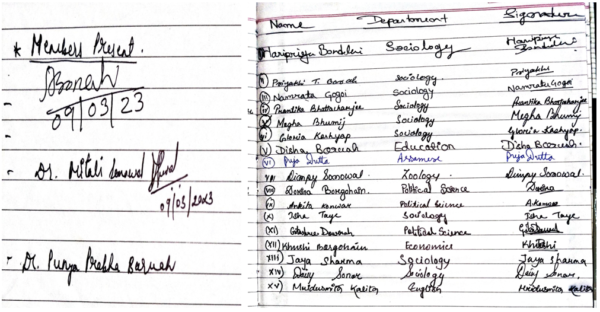 * Members Present.
Borah
09/03/23
- Dr. Mitali Sonowal
09/03/2023
- Dr. Punya Prabha Baruah
Name Department Signature
Haripriya Bordoloi Sociology Haripriya Bordoloi
II) Priyakhi T. Borah Sociology Priyakhi
III) Namrata Gogoi Sociology Namrata Gogoi
Prantika Bhattacharjee Sociology Prantika Bhattacharjee
Megha Bhumij Sociology Megha Bhumij
Gloria Kashyap Sociology Gloria Kashyap.
V) Disha Boruah Education Disha Boruah
VI) Priya Dutta Assamese Priya Dutta
VII) Dimpy Sonowal Zoology. Dimpy Sonowal.
VIII) Borgohain. Political Science
IX) Ankita Konwar Political Science A.Konwar
X) Ishe Taye Sociology Ishe Taye
XI) Political Science
XII) Khushi Borgohain Economics Khushi
XIII) Jaya Sharma Sociology Jaya Sharma
XIV) Daisy Sonar Sociology Daisy Sonar.
XV) Mridusmita Kalita English Mridusmita Kalita